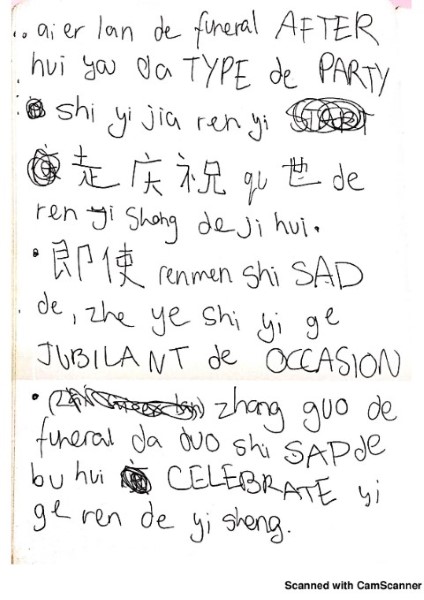 ai er lan de funeral AFTER
hui you da TYPE de PARTY
shi yi jia ren yi
走 庆祝 qu 世 de
ren yi shang de ji hui.
即使 renmen shi SAD
de, zhe ye shi yi ge
JUBILANT de OCCASION
zhong guo de
funeral da duo shi SAD de
bu hui CELEBRATE yi
ge ren de yi sheng.
Scanned with CamScanner